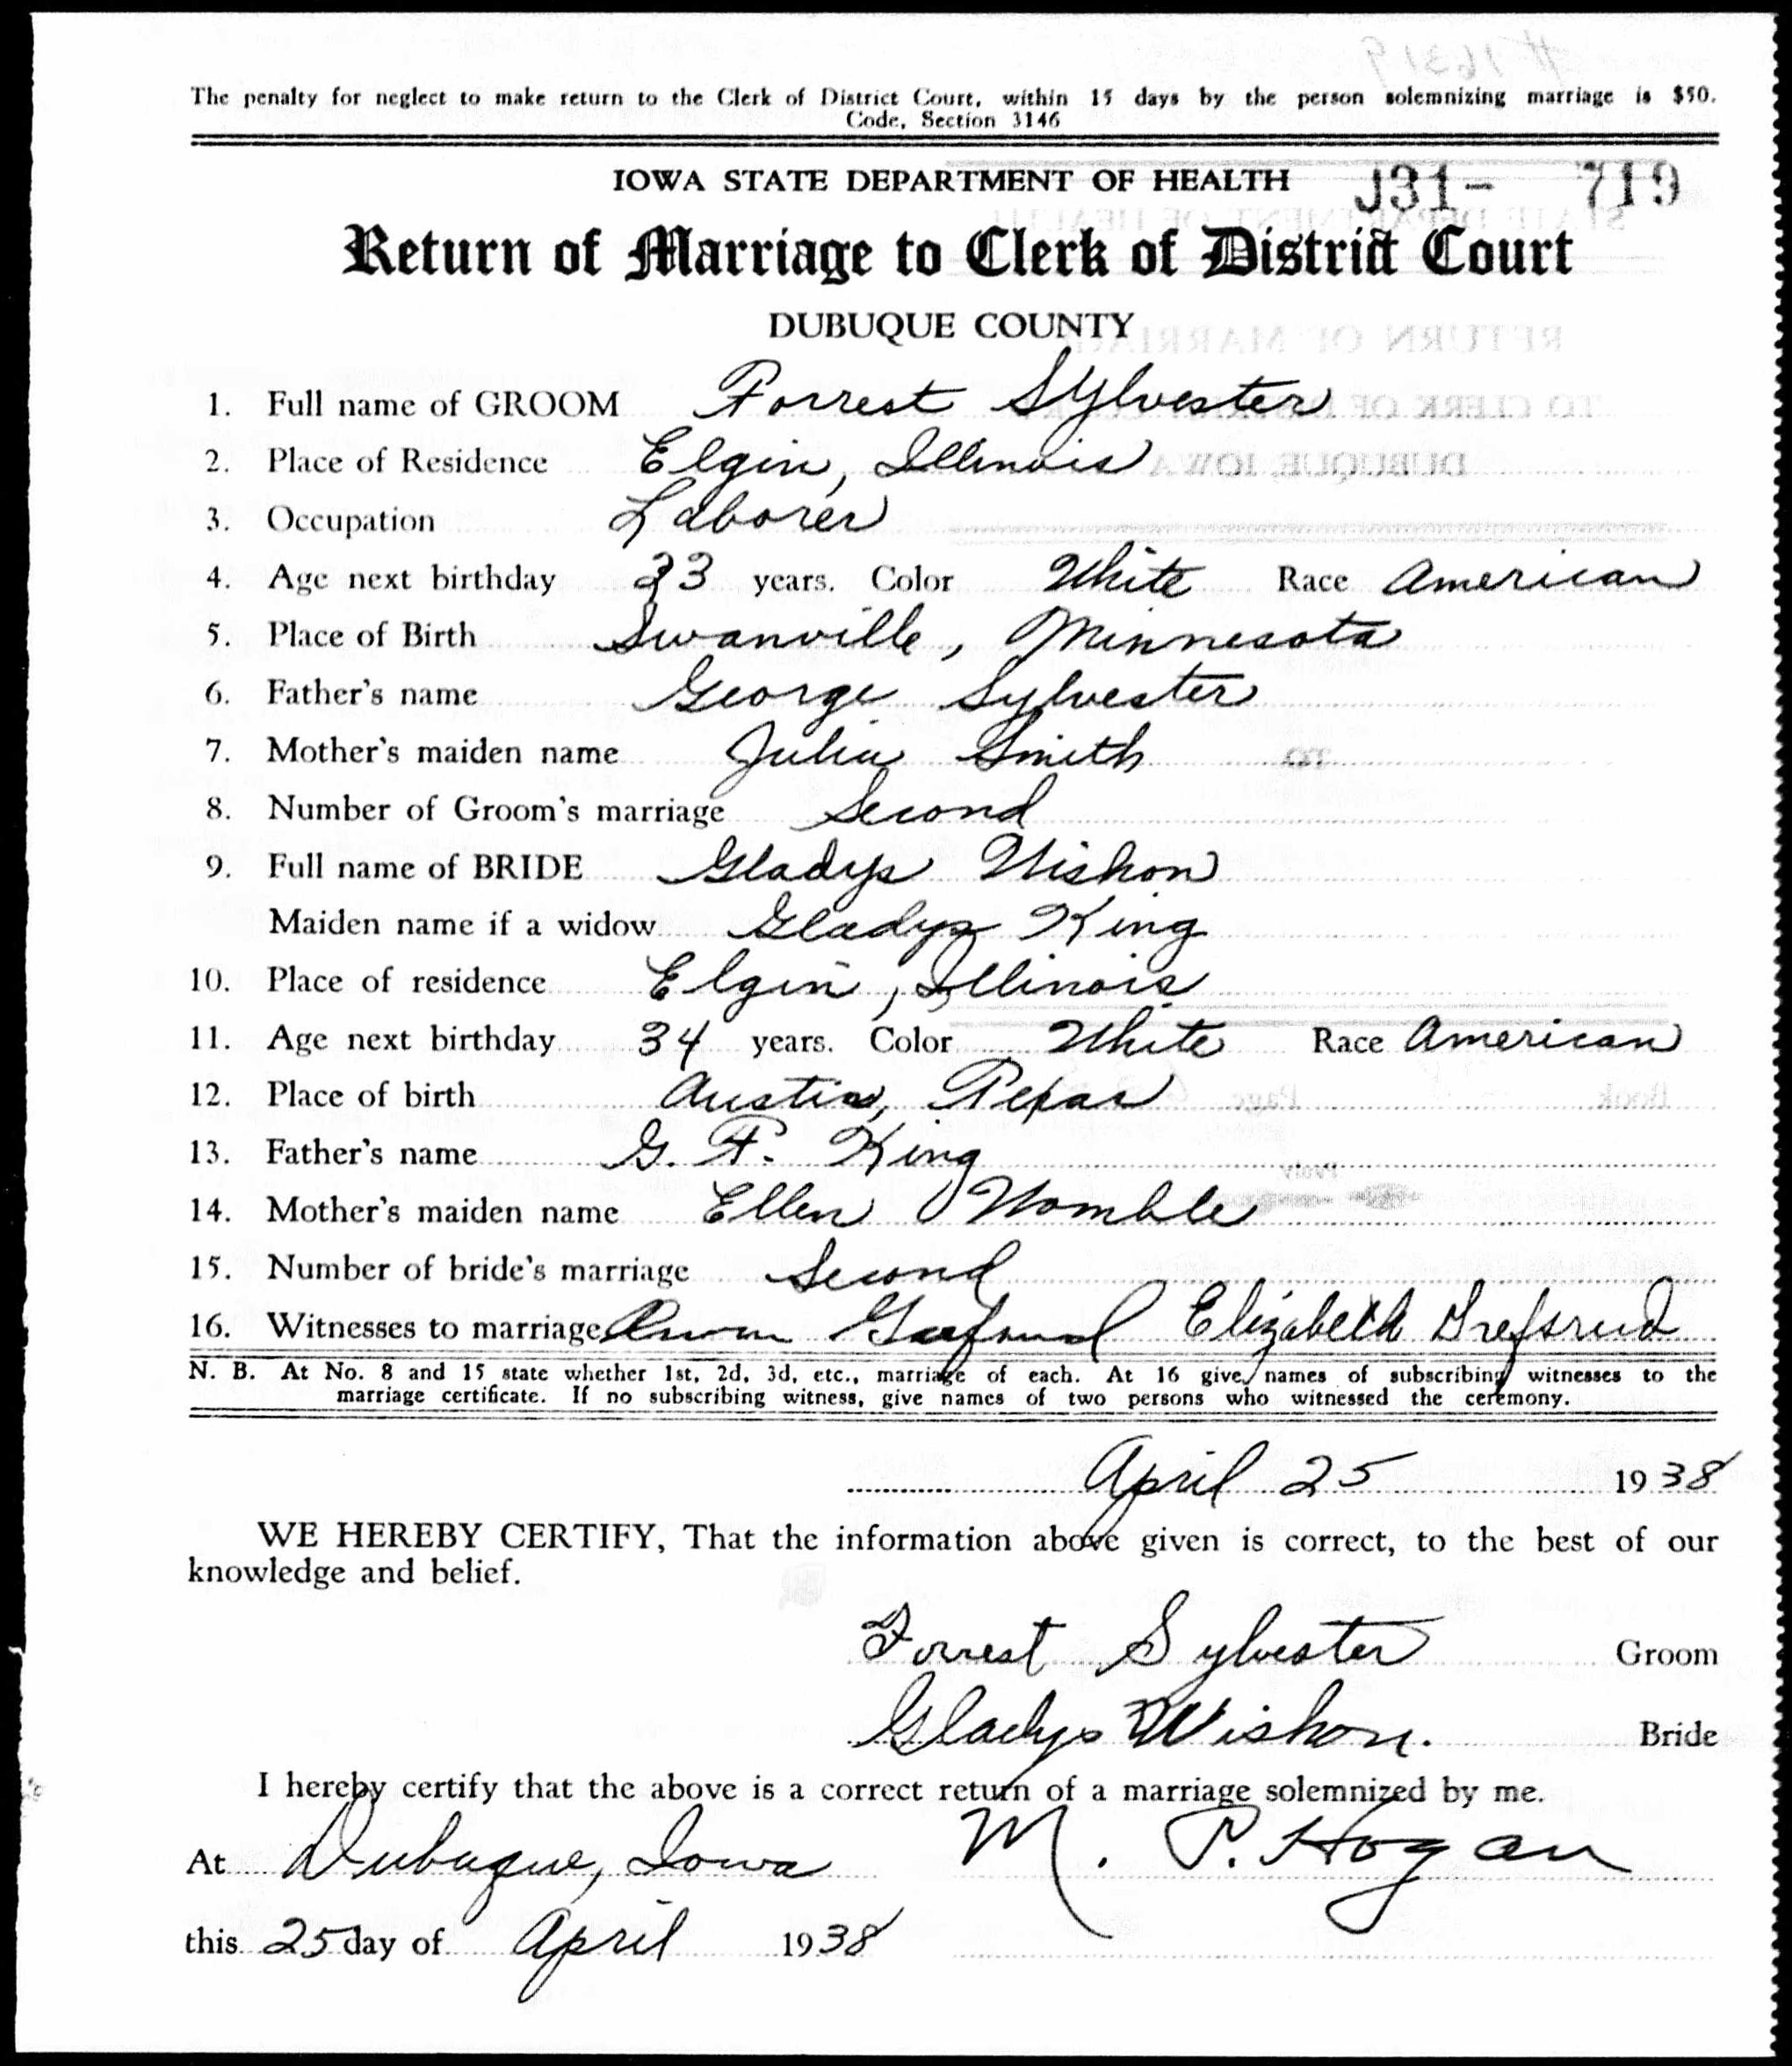 The penalty for neglect to make return to the Clerk of District Court, within 15 days by the person solemnizing marriage is $50.
Code, Section 3146
IOWA STATE DEPARTMENT OF HEALTH J31- 719
Return of Marriage to Clerk of District Court
DUBUQUE COUNTY
1. Full name of GROOM Forrest Sylvester
2. Place of Residence Elgin, Illinois
3. Occupation Laborer
4. Age next birthday 33 years. Color White Race American
5. Place of Birth Swanville, Minnesota
6. Father's name George Sylvester
7. Mother's maiden name Julia Smith
8. Number of Groom's marriage Second
9. Full name of BRIDE Gladys Wishon
Maiden name if a widow Gladys King
10. Place of residence Elgin, Illinois
11. Age next birthday 34 years. Color White Race American
12. Place of birth Austin, Texas
13. Father's name G. F. King
14. Mother's maiden name Ellen Womble
15. Number of bride's marriage Second
16. Witnesses to marriage Elizabeth
N. B. At No. 8 and 15 state whether 1st, 2d, 3d, etc., marriage of each. At 16 give names of subscribing witnesses to the
marriage certificate. If no subscribing witness, give names of two persons who witnessed the ceremony.
April 25 1938
WE HEREBY CERTIFY, That the information above given is correct, to the best of our
knowledge and belief.
Forrest Sylvester Groom
Gladys Wishon. Bride
I hereby certify that the above is a correct return of a marriage solemnized by me.
At Dubuque, Iowa M. P. Hogan
this 25 day of April 1938